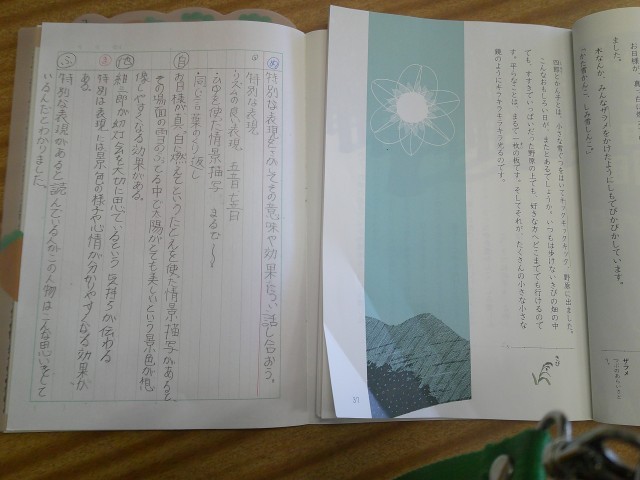 お日様が
ました。
木なんか、みんなザラメをかけたようにしもでぴかぴかしています。
「かた雪かんこ、しみ雪しんこ。」
四郎とかん子とは、小さな雪ぐつをはいてキックキックキック、野原に出ました。
こんなおもしろい日が、またとあるでしょうか。いつもは歩けないきびの畑の中
でも、すすきでいっぱいだった野原の上でも、好きな方へどこまででも行けるので
す。平らなことは、まるで一枚の板です。そしてそれが、たくさんの小さな小さな
鏡のようにキラキラキラキラ光るのです。
きび
ザラメ
31
め 特別な表現をさがしてその意味や効果について話し合おう。
特別な表現
リズムの良い表現 五音七音
ひゆを使った情景描写 まるで〜
同じ言葉のくり返し
自 お日様が真っ白に燃えてというひたとえを使た情景描写があると
その場面の雪の
中で太陽がとても
という景色が想
像しやすくなる効果がある。
紺三郎が幻灯会を大切に思っているという気持ちが伝わる
ま 特別な表現には景色の様子や心情が分かりやすくなる効果が
ある。
ふ 特別な表現があると読んでいる人がこの人物はこんな思いをして
いるんだとわかりました。